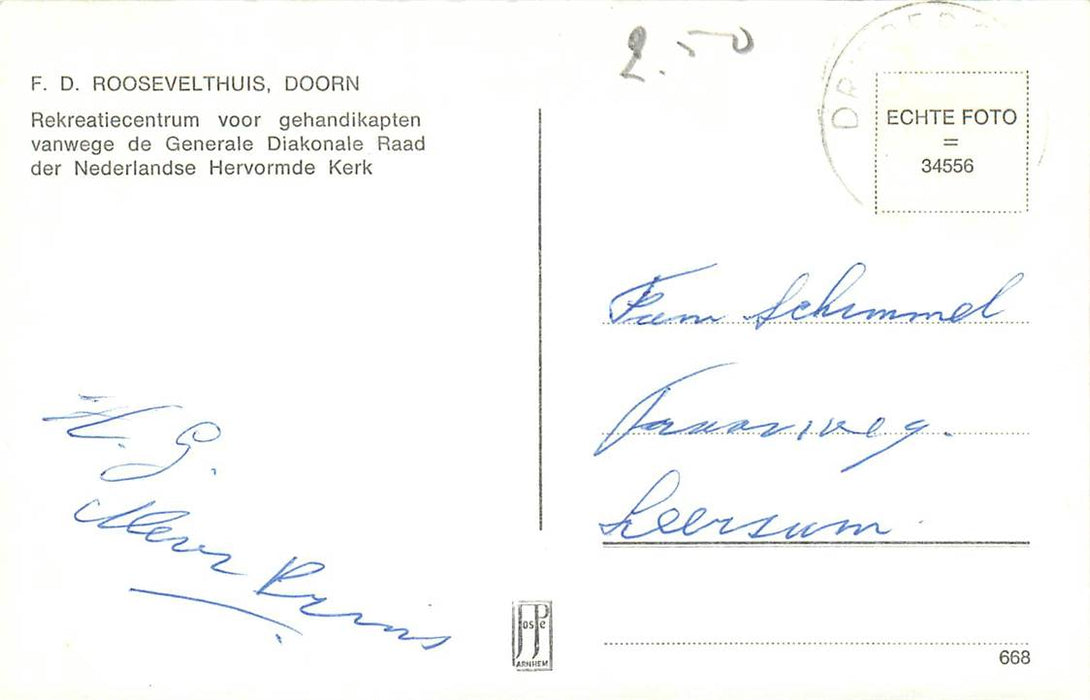 2.50
F. D. ROOSEVELTHUIS, DOORN
Rekreatiecentrum voor gehandikapten
vanwege de Generale Diakonale Raad
der Nederlandse Hervormde Kerk
ECHTE FOTO
=
34556
Fam Schimmel
Leersum
H. G.
Mevr Prins
JosPé
ARNHEM
668